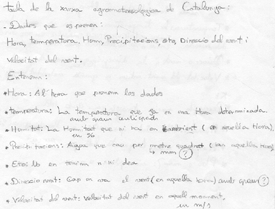 Taula de la xarxa agrometeorològica de Catalunya:
- Dades que es prenen:
Hora, temperatura, Hum, Precipitacions, etc, Direcció del vent i
Velocitat del vent.
Entenem:
• Hora: A l'hora que prenem les dades
• temperatura: La temperatura que fa a una Hora determinada
amb quina unitat
• Humitat: La Humitat que hi ha en l'ambient (en aquella hora)
en
• Precipitacions: Aigua que cau per metre quadrat (en aquella hora)
→ mm (?)
•
• Direcció vent: Cap on va el vent (en aquella hora) amb graus (?)
• Velocitat del vent: Velocitat del vent en aquell moment.
en m/s